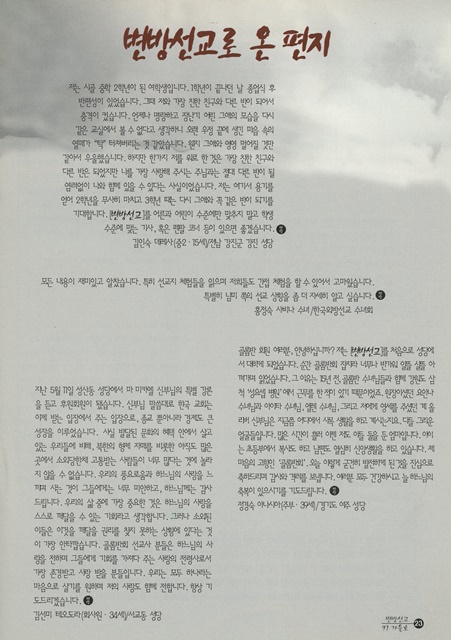 변방선교로 온 편지
저는 시골 중학 2학년이 된 여학생입니다. 1학년이 끝나던 날 종업식 후
반편성이 있었습니다. 그때 저와 가장 친한 친구와 다른 반이 되어서
충격이 컸습니다. 언제나 명랑하고 장난기 어린 그애의 모습을 다시
같은 교실에서 볼 수 없다고 생각하니 오랜 우정 끝에 생긴 마음 속의
열매가 "탁" 터져버리는 것 같았습니다. 왠지 그애와 영영 멀어질 것만
같아서 우울했습니다. 하지만 한가지 저를 위로 한것은 가장 친한 친구와
다른 반은 되었지만 나를 가장 사랑해 주시는 주님과는 절대 다른 반이 될
염려없이 나와 함께 있을 수 있다는 사실이었습니다. 저는 여기서 용기를
얻어 2학년을 무사히 마치고 3학년 때는 다시 그애와 꼭 같은 반이 되기를
기대합니다. [변방선교]를 어른과 어린이 수준에만 맞추지 말고 학생
수준에 맞는 기사, 혹은 펜팔 코너 등이 있으면 좋겠습니다.
김인숙 데레사(중2·15세)/전남 강진군 강진 성당
모든 내용이 재미있고 알찼습니다. 특히 선교지 체험들을 읽으며 저희들도 간접 체험을 할 수 있어서 고마웠습니다.
특별히 남미 쪽의 선교 상황을 좀 더 자세히 알고 싶습니다.
홍정숙 사비나 수녀/한국외방선교 수녀회
지난 5월 11일 성산동 성당에서 마 미카엘 신부님의 특별 강론
을 듣고 후원회원이 됐습니다. 신부님 말씀대로 한국 교회는
이제 받는 입장에서 주는 입장으로, 종교 뿐아니라 경제도 큰
성장을 이루었습니다. 사실 발달된 문화의 혜택 안에서 살고
있는 우리들에 비해, 북한의 형제 자매를 비롯한 아직도 많은
곳에서 소외당한채 고통받는 사람들이 너무 많다는 것에 놀라
지 않을 수 없습니다. 우리의 풍요로움과 하느님의 사랑을 느
끼며 사는 것이 그들에게는 너무 미안하고, 하느님께는 감사
드립니다. 우리의 삶 중에 가장 중요한 것은 하느님의 사랑을
스스로 깨달을 수 있는 기회라고 생각합니다. 그러나 소외된
이들은 이것을 깨달을 권리를 찾지 못하는 상황에 있다는 것
이 가장 안타깝습니다. 골롬반회 선교사 분들은 하느님의 사
랑을 전하며 그들에게 기회를 가져다 주는 사랑의 전령사로서
가장 존경받고 사랑 받을 분들입니다. 우리는 모두 하나라는
마음으로 살기를 원하며 저의 사랑도 함께 전합니다. 항상 기
도드리겠습니다.
김선미 테오도라(회사원·34세)/서교동 성당
골롬반 회원 여러분, 안녕하십니까? 저는 [변방선교]를 처음으로 성당에
서 대하게 되었습니다. 순간 골롬반회 잡지라 너무나 반가워 얼른 실을 아
껴가며 읽었습니다. 그 이유는 19년 전, 골롬반 수녀님들과 함께 강원도 삼
척 '성요셉 병원'에서 근무를 한 적이 있기 때문이었죠. 원장이셨던 요안나
수녀님과 이이타 수녀님, 헬렌 수녀님, 그리고 저에게 영세를 주셨던 게 을
리버 신부님은 지금쯤 어디에서 사목 생활을 하고 계시는지요, 다들 그리운
얼굴들입니다. 많은 시간이 흘러 이젠 저도 아들 둘을 둔 엄마입니다. 아이
는 초등부에서 복사도 하고 남편도 열심히 신앙생활을 하고 있습니다. 제
마음의 고향인 '골롬반회', 오늘 이렇게 굳건히 발전하게 된 것을 진심으로
축하드리며 감사와 격려를 보냅니다. 여러분 모두 건강하시고 늘 하느님의
축복이 있으시기를 기도드립니다.
정경숙 아나시아(주부·39세)/경기도 여주 성당
변방선교
97 가을호
23